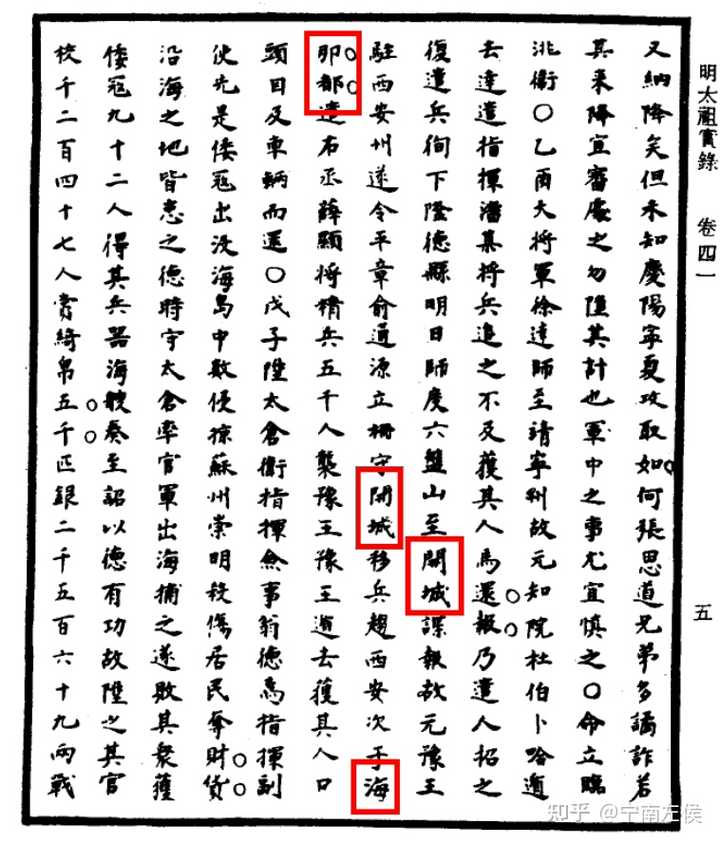 明太祖實錄 卷四一 五
又納降矣但未知慶陽寧夏攻取如何張思道兄弟多譎詐若
其來降宜審處之勿墮其計也軍中之事尤宜慎之〇命立臨
洮衞〇乙酉大將軍徐達師至靖寧州故元知院杜伯卜哈遁
去達遣指揮潘某將兵追之不及獲其人馬還報乃遣人招之
復遣兵徇下隆德縣明日師度六盤山至開城諜報故元豫王
駐西安州遂令平章俞通源立柵守開城移兵趨西安次于海
郍都遣右丞薛顯將精兵五千人襲豫王豫王遁去獲其人口
頭目及車輛而還〇戊子陞太倉衞指揮僉事翁德為指揮副
使先是倭寇出没海島中數侵掠蘇州崇明殺傷居民奪財貨
沿海之地皆患之德時守太倉率官軍出海捕之遂敗其衆獲
倭寇九十二人得其兵器海艘奏至詔以德有功故陞之其官
校千二百四十七人賞綺帛五千匹銀二千五百六十九兩戰
知乎 @宁南左侯